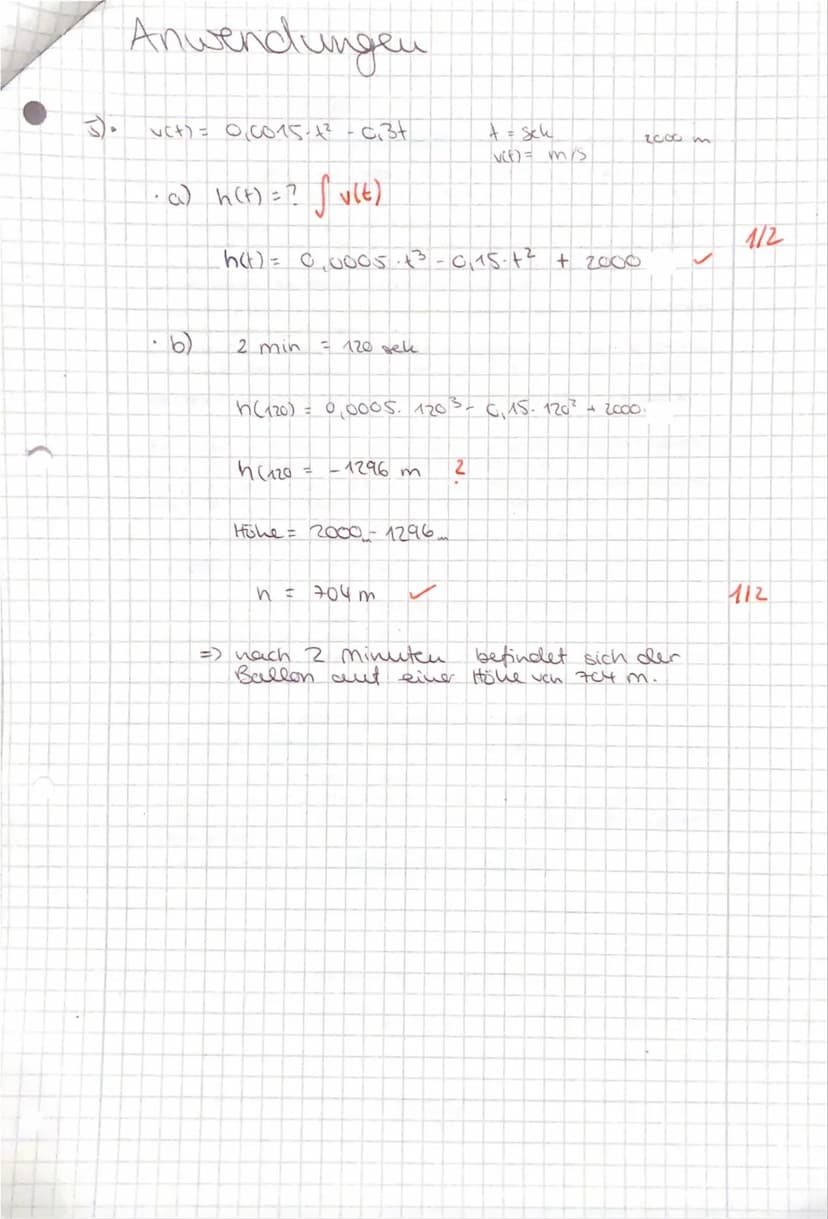 Anwendungen
5). v(t) = 0,0015·t² - 0,3t t = sek 2000 m
v(t) = m/s
· a) h(t) = ? ∫ v(t)
1/2
h(t) = 0,0005·t³ - 0,15·t² + 2000 ✓
· b) 2 min = 120 sek
h(120) = 0,0005· 120³ - 0,15· 120² + 2000
h(120 = -1296 m ?
Höhe = 2000m - 1296m
h = 704 m ✓ 1/2
=> nach 2 Minuten befindet sich der
Ballon auf einer Höhe von 704 m.